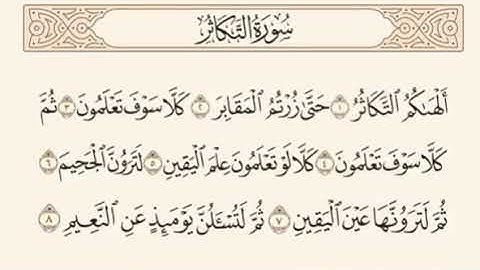 سُورَةُ التَّكَاثُرِ
أَلْهَىٰكُمُ التَّكَاثُرُ ١ حَتَّىٰ زُرْتُمُ الْمَقَابِرَ ٢ كَلَّا سَوْفَ تَعْلَمُونَ ٣ ثُمَّ
كَلَّا سَوْفَ تَعْلَمُونَ ٤ كَلَّا لَوْ تَعْلَمُونَ عِلْمَ الْيَقِينِ ٥ لَتَرَوُنَّ الْجَحِيمَ ٦
ثُمَّ لَتَرَوُنَّهَا عَيْنَ الْيَقِينِ ٧ ثُمَّ لَتُسْـَٔلُنَّ يَوْمَئِذٍ عَنِ النَّعِيمِ ٨